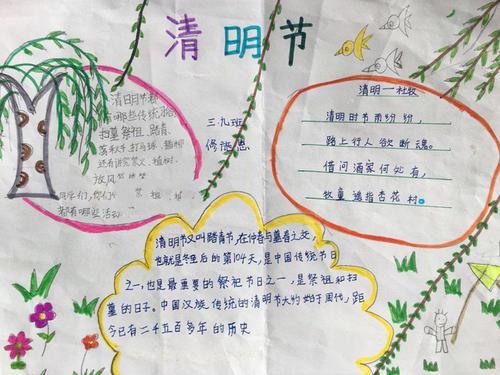 清明节
清明节都
有哪些传统
扫墓祭祖、踏青、
荡秋千、打马球、插柳
还有讲究禁火、植树、
放风
都有哪些活动
三.九班
清明—杜牧
清明时节雨纷纷,
路上行人欲断魂。
借问酒家何处有,
牧童遥指杏花村。
清明节又叫踏青节,在仲春与暮春之交,
也就是冬至后的第104天,是中国传统节日
之一,也是最重要的祭祀节日之一,是祭祖和扫
墓的日子。中国汉族传统的清明节大约始于周代,距
今已有二千五百多年的历史